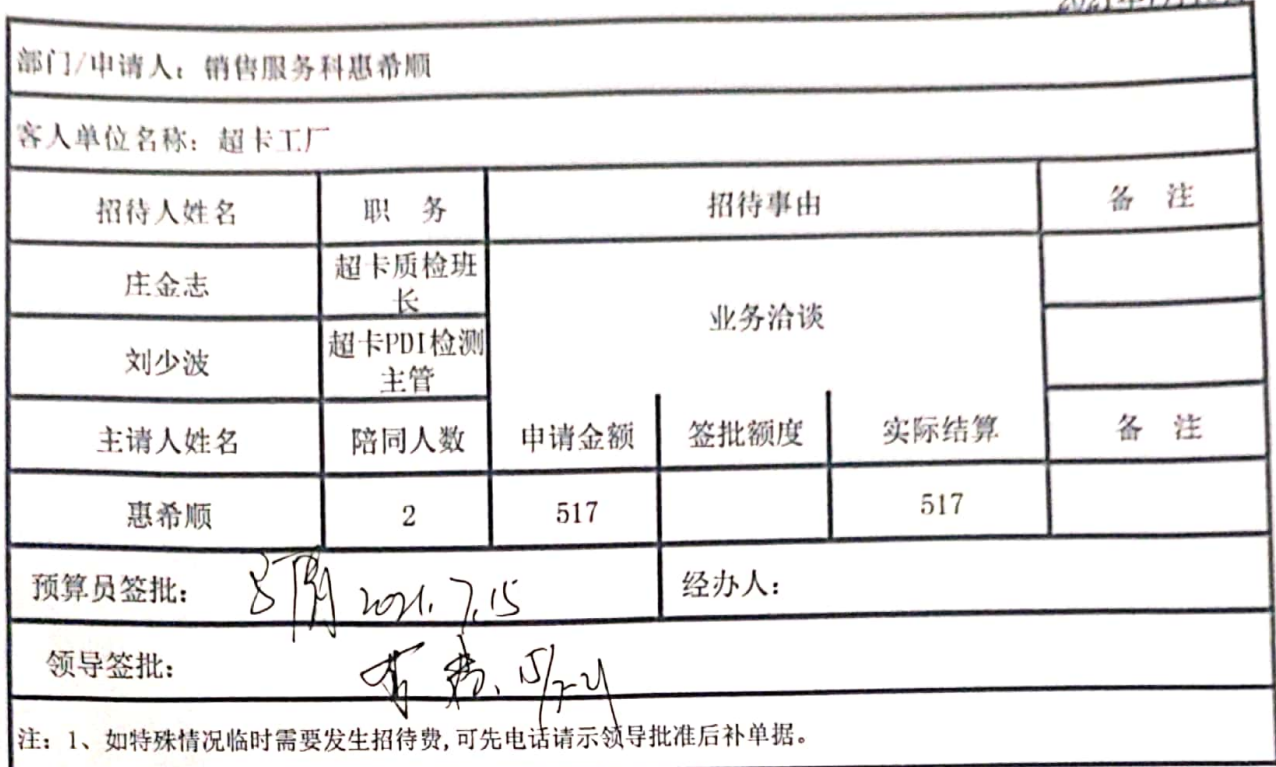 部门/申请人：销售服务科惠希顺
客人单位名称：超卡工厂
招待人姓名 职 务 招待事由 备 注
庄金志 超卡质检班长 业务洽谈
刘少波 超卡PDI检测主管
主请人姓名 陪同人数 申请金额 签批额度 实际结算 备 注
惠希顺 2 517 517
预算员签批： 2021.7.15 经办人：
领导签批： 15/7-21
注：1、如特殊情况临时需要发生招待费,可先电话请示领导批准后补单据。